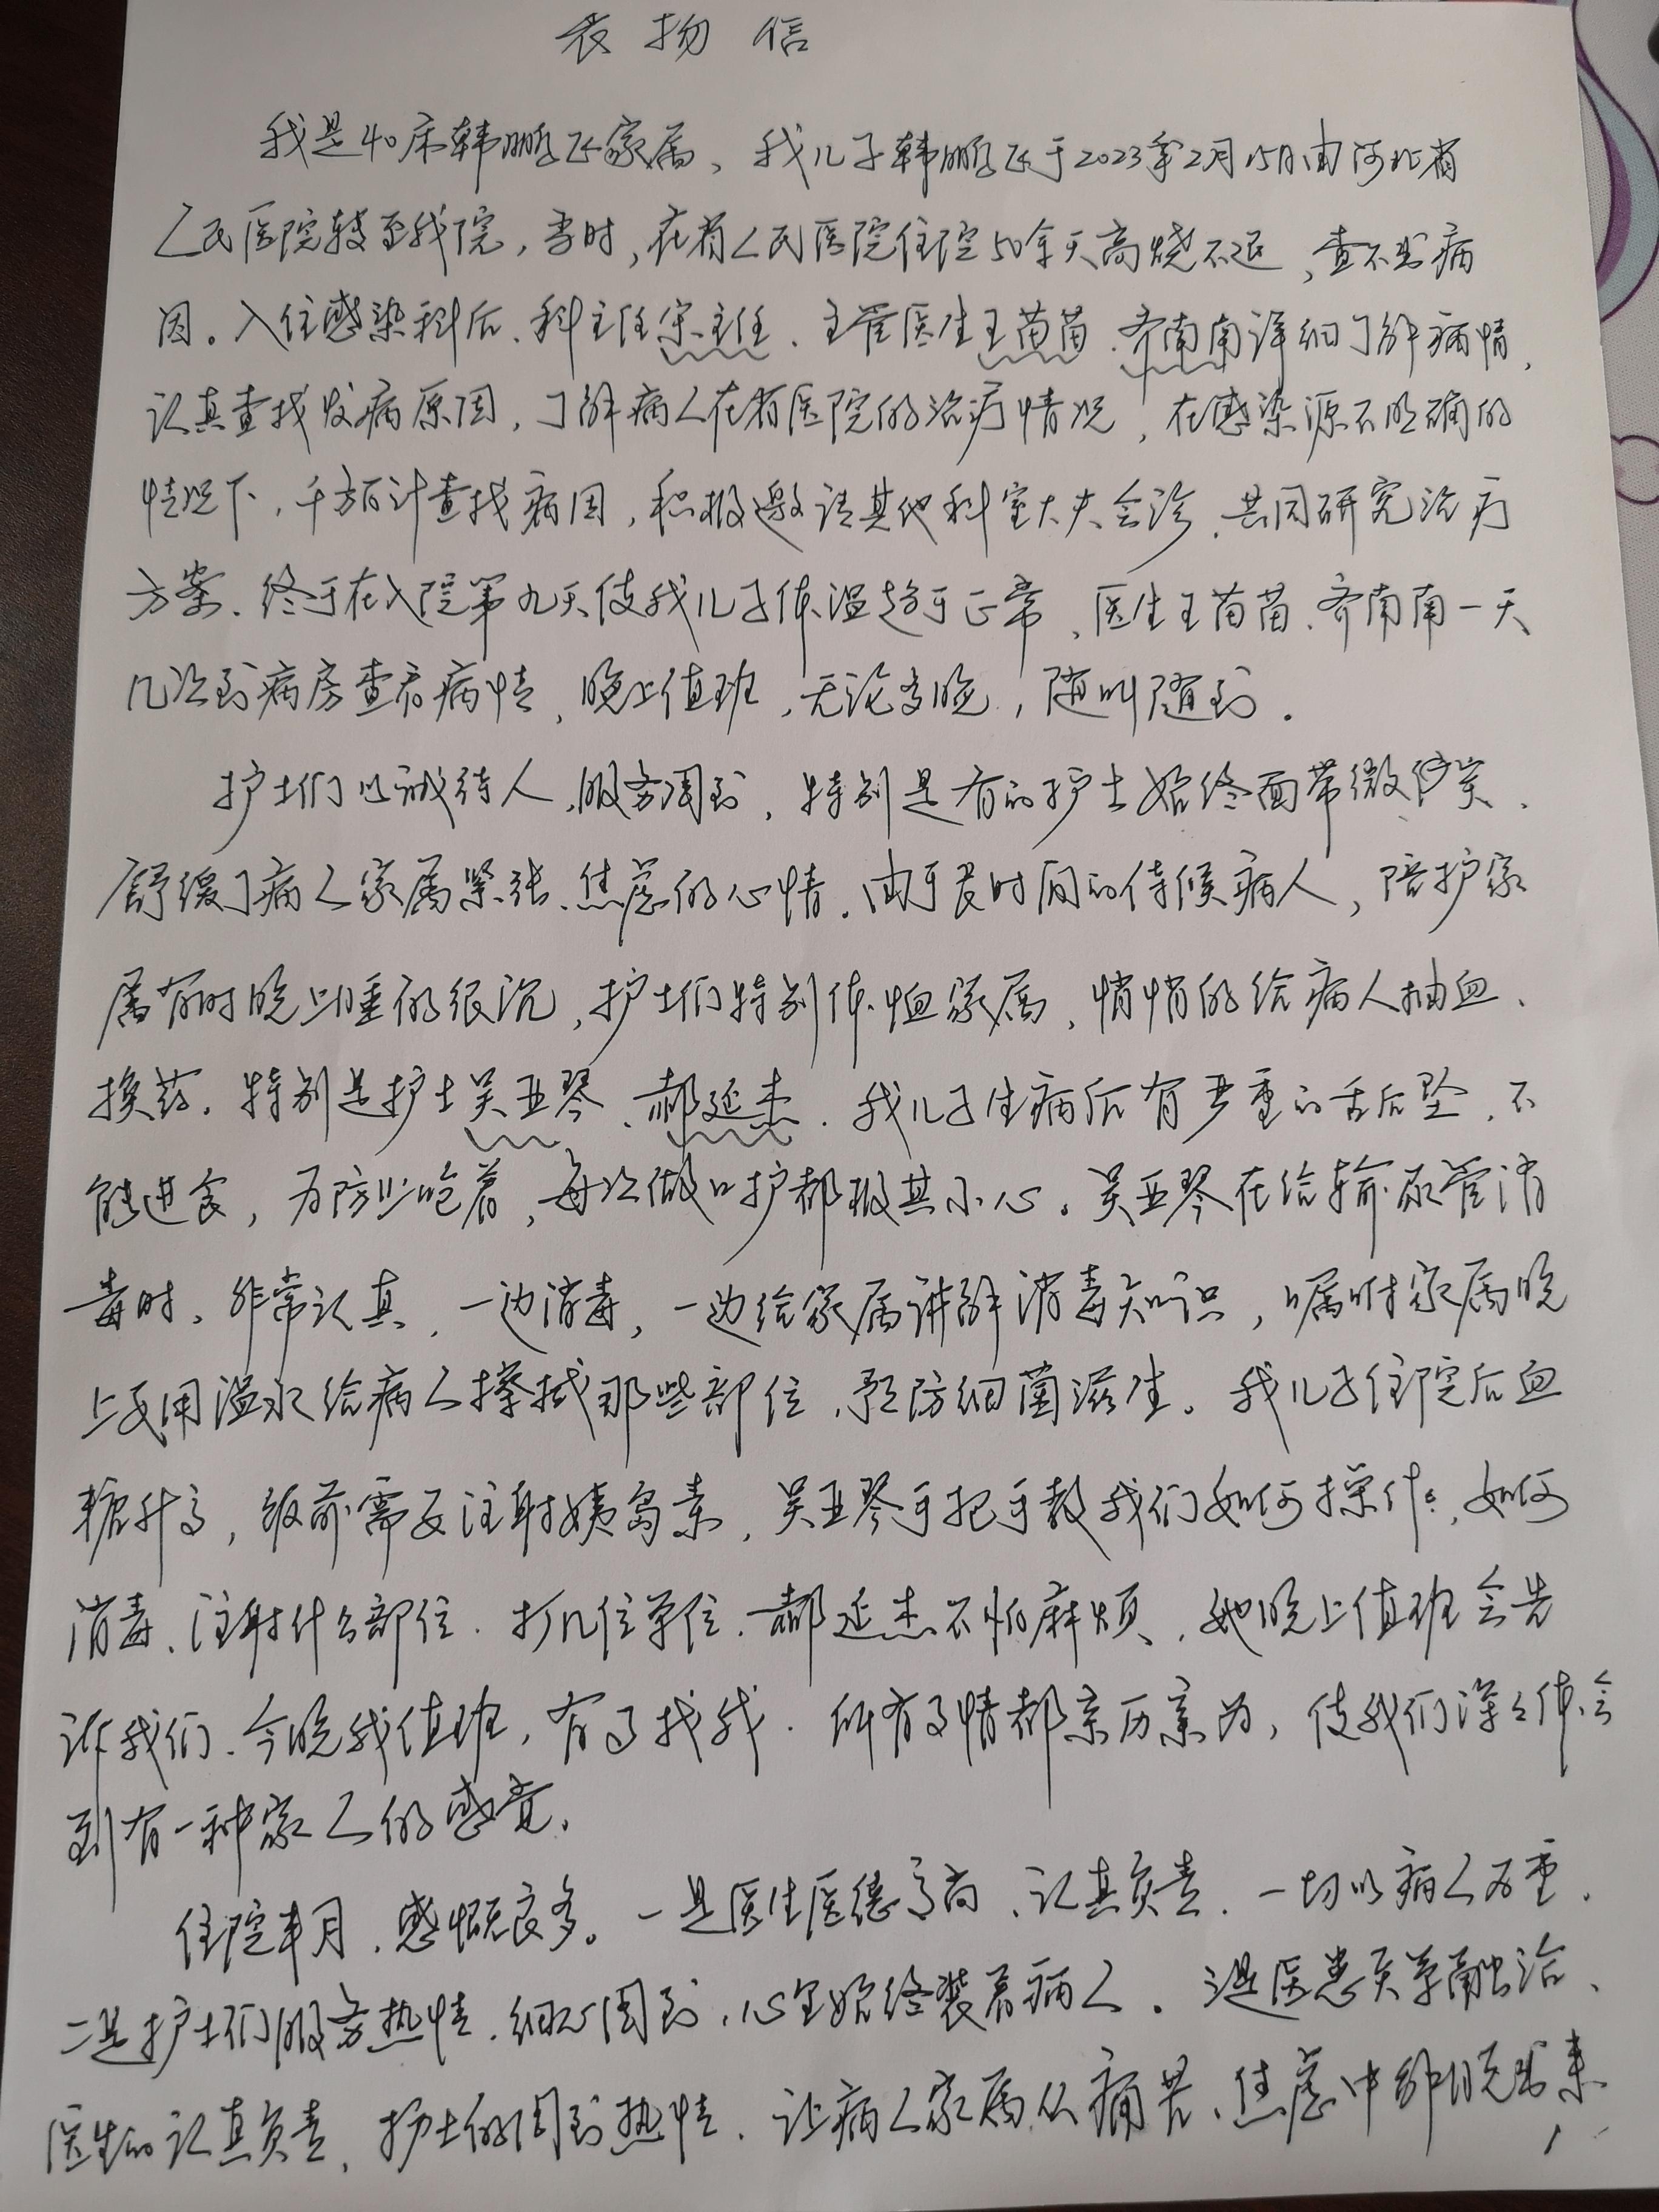 表扬信
我是40床韩鹏飞家属，我儿子韩鹏飞于2023年2月15日由河北省
人民医院转至我院，当时，在省人民医院住院50余天高烧不退，查不出病
因。入住感染科后，科主任宋主任、主管医生王苗苗、齐南南详细了解病情，
认真查找发病原因，了解病人在省医院的治疗情况，在感染源不明确的
情况下，千方百计查找病因，积极邀请其他科室大夫会诊，共同研究治疗
方案，终于在入院第九天使我儿子体温趋于正常，医生王苗苗、齐南南一天
几次到病房查看病情，晚上值班，无论多晚，随叫随到。
护士们以诚待人，服务周到，特别是有的护士始终面带微笑，
舒缓了病人家属紧张、焦虑的心情。由于长时间的侍候病人，陪护家
属有时晚上睡的很沉，护士们特别体恤家属，悄悄的给病人抽血、
换药。特别是护士吴亚琴、郝延杰，我儿子生病后有严重的舌后坠，不
能进食，为防止呛着，每次做口护都极其小心。吴亚琴在给输尿管消
毒时，非常认真，一边消毒，一边给家属讲解消毒知识，嘱咐家属晚
上要用温水给病人擦拭那些部位，预防细菌滋生。我儿子住院后血
糖升高，饭前需要注射胰岛素，吴亚琴手把手教我们如何操作，如何
消毒、注射什么部位、打几位单位，郝延杰不怕麻烦，她晚上值班会告
诉我们，今晚我值班，有事找我，所有事情都亲历亲为，使我们深深体会
到有一种家人的感觉。
住院半月，感慨良多。一是医生医德高尚，认真负责，一切以病人为重，
二是护士们服务热情，细心周到，心里始终装着病人。这是医患关系融洽，
医生的认真负责，护士的周到热情，让病人家属从痛苦、焦虑中解脱出来